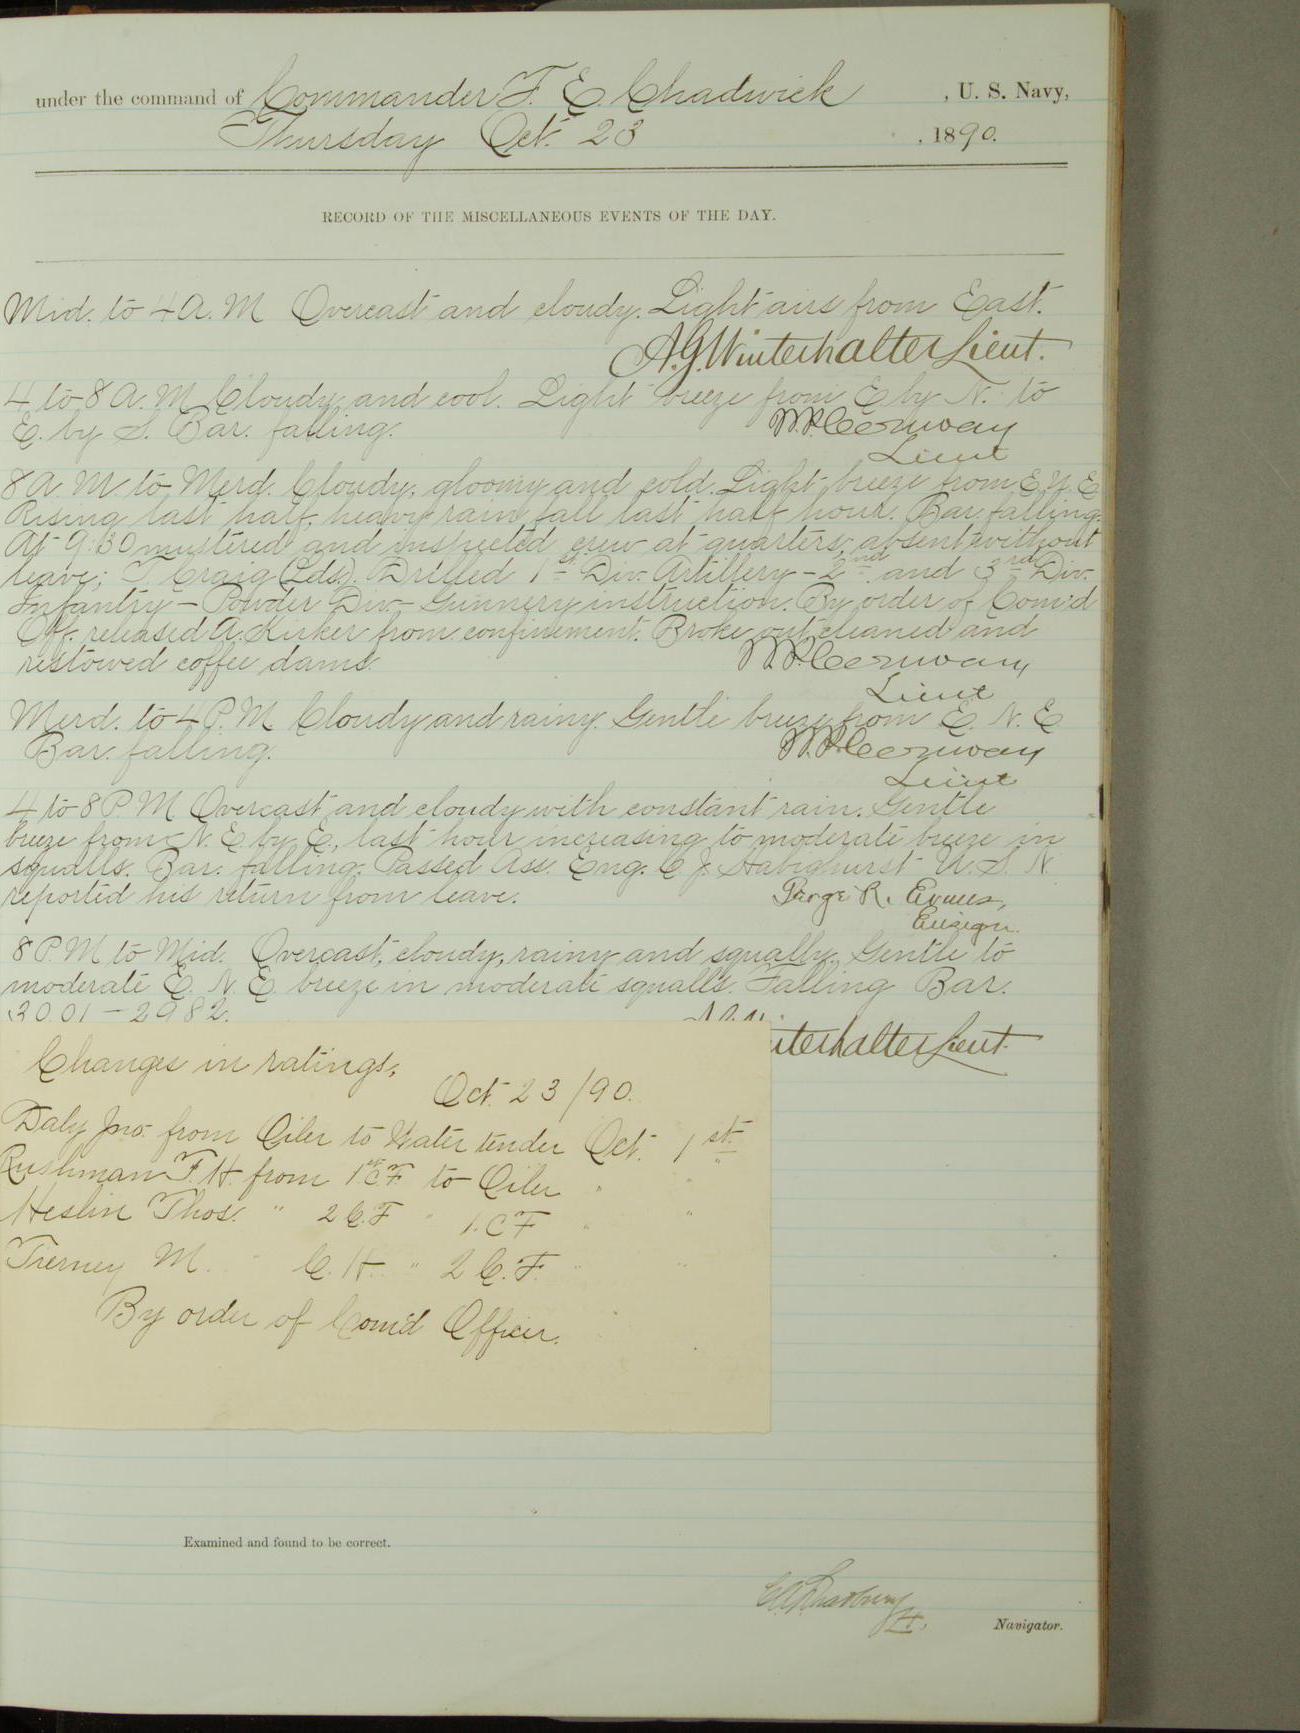 under the command of Commander F. E. Chadwick , U. S. Navy,
Thursday Oct. 23 , 1890.
RECORD OF THE MISCELLANEOUS EVENTS OF THE DAY.
Mid. to 4 A. M Overcast and cloudy. Light airs from East.
A.G. Winterhalter Lieut.
4 to 8 A. M Cloudy and cool. Light breeze from E by N. to
E. by S. Bar. falling.
W.P. Conway
Lieut
8 A. M. to Merd. Cloudy, gloomy and cold. Light breeze from E. N. E
Rising last half, heavy rain fall last half hour. Bar. falling.
At 9:30 mustered and inspected crew at quarters, absent without
leave; T. Craig (Lds.). Drilled 1st Div. Artillery - 2nd and 3rd Div.
Infantry - Powder Div - Gunnery instruction. By order of Com'd
Off. released A. Kirker from confinement. Broke out cleaned and
restowed coffee dams.
W.P. Conway
Lieut
Merd. to 4 P. M Cloudy and rainy. Gentle breeze from E. N. E
Bar. falling.
W.P. Conway
Lieut
4 to 8 P. M Overcast and cloudy with constant rain. Gentle
breeze from N. E by E, last hour increasing to moderate breeze in
squalls. Bar. falling. Passed Ass. Eng. C. J. Habighurst U. S. N.
reported his return from leave.
George R. Evans,
Ensign.
8 P. M to Mid. Overcast, cloudy, rainy and squally. Gentle to
moderate E. N. E breeze in moderate squalls. Falling Bar.
30.01 - 29 82.
Winterhalter Lieut.
Changes in ratings,
Oct. 23/90.
Daly Jno. from Oiler to Water tender Oct. 1st
Rushman F. H. from 1st C F to Oiler " "
Heslin Thos. " 2 C. F " 1. C F " "
Tierney M. " C. H. " 2 C. F. " "
By order of Com'd Officer.
Examined and found to be correct.
Navigator.